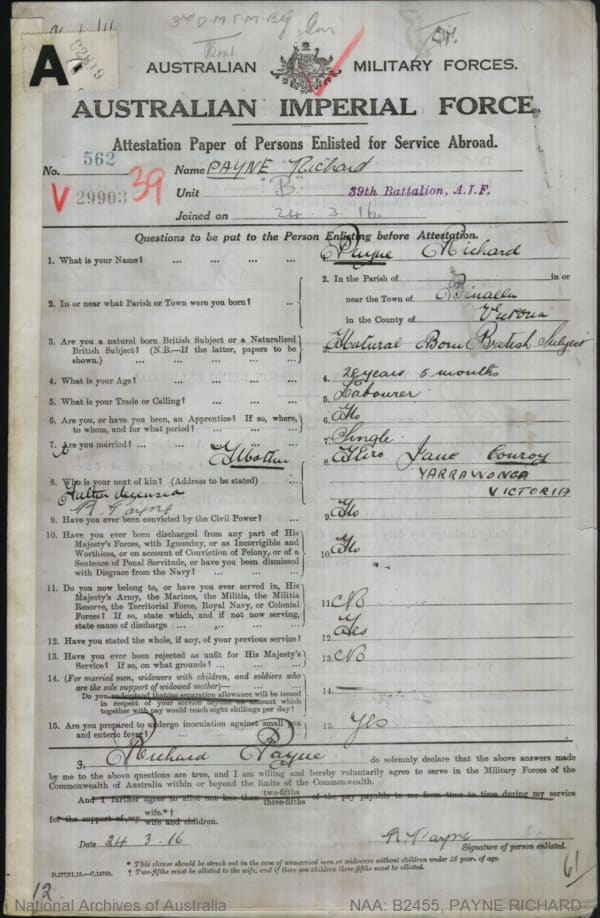 3rd D.M.T.M. Bty
A
29819
AUSTRALIAN MILITARY FORCES.
AUSTRALIAN IMPERIAL FORCE.
Attestation Paper of Persons Enlisted for Service Abroad.
No. 562 Name PAYNE Richard
V 29903 39 Unit "B" 39th Battalion, A.I.F.
Joined on 24 . 3 . 16.
Questions to be put to the Person Enlisting before Attestation.
1. What is your Name? ... ... ... ... 1. Payne Richard
2. In or near what Parish or Town were you born? .. 2. In the Parish of in or
near the Town of Binalla
in the County of Victoria
3. Are you a natural born British Subject or a Naturalized
British Subject? (N.B.—If the latter, papers to be
shown.) ... ... ... ... 3. Natural Born British Subject
4. What is your Age? ... ... ... ... 4. 28 years 5 months
5. What is your Trade or Calling? ... ... ... 5. Labourer
6. Are you, or have you been, an Apprentice? If so, where,
to whom, and for what period? ... ... ... 6. No
7. Are you married? ... ... ... ... 7. Single
8. Who is your next of kin? (Address to be stated) ... 8. Mrs Jane Conroy
YARRAWONGA
VICTORIA
(Mother
Father deceased
R. Payne
9. Have you ever been convicted by the Civil Power? ... 9. No
10. Have you ever been discharged from any part of His
Majesty's Forces, with Ignominy, or as Incorrigible and
Worthless, or on account of Conviction of Felony, or of a
Sentence of Penal Servitude, or have you been dismissed
with Disgrace from the Navy? ... ... ... 10. No
11. Do you now belong to, or have you ever served in, His
Majesty's Army, the Marines, the Militia, the Militia
Reserve, the Territorial Force, Royal Navy, or Colonial
Forces? If so, state which, and if not now serving,
state cause of discharge ... ... ... ... 11. No
12. Have you stated the whole, if any, of your previous service? 12. Yes
13. Have you ever been rejected as unfit for His Majesty's
Service? If so, on what grounds? ... ... ... 13. No
14. (For married men, widowers with children, and soldiers who
are the sole support of widowed mother)—
Do you understand that no separation allowance will be issued
in respect of your service beyond an amount which
together with pay would reach eight shillings per day? 14. —
15. Are you prepared to undergo inoculation against small pox
and enteric fever? ... ... ... ... 15. Yes
I, Richard Payne do solemnly declare that the above answers made
by me to the above questions are true, and I am willing and hereby voluntarily agree to serve in the Military Forces of the
Commonwealth of Australia within or beyond the limits of the Commonwealth.
And I further agree to allot not less than two-fifths three-fifths of the pay payable to me from time to time during my service
for the support of my wife.*† wife and children.
Date 24 3 . 16 R. Payne
Signature of person enlisted.
61
* This clause should be struck out in the case of unmarried men or widowers without children under 18 years of age.
† Two-fifths must be allotted to the wife, and if there are children three-fifths must be allotted.
12.
National Archives of Australia NAA: B2455, PAYNE RICHARD